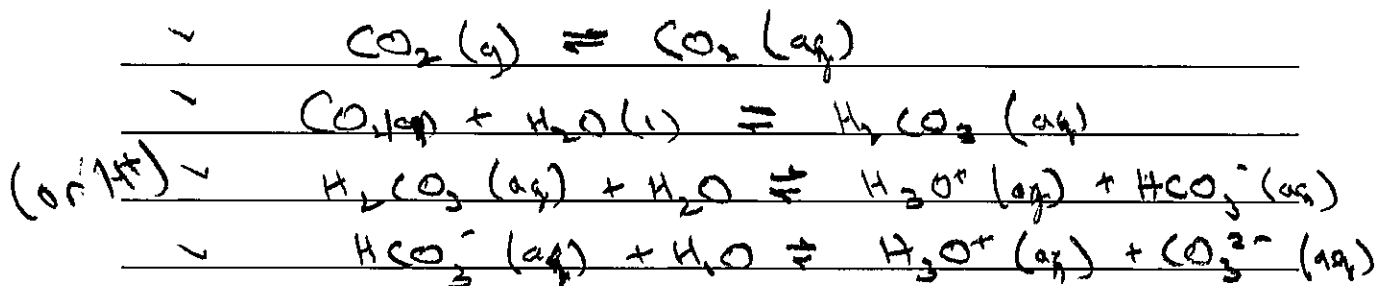 ✓ CO₂ (g) ⇌ CO₂ (aq)
✓ CO₂(aq) + H₂O (l) ⇌ H₂CO₃ (aq)
(or H⁺) ✓ H₂CO₃ (aq) + H₂O ⇌ H₃O⁺ (aq) + HCO₃⁻ (aq)
✓ HCO₃⁻ (aq) + H₂O ⇌ H₃O⁺ (aq) + CO₃²⁻ (aq)